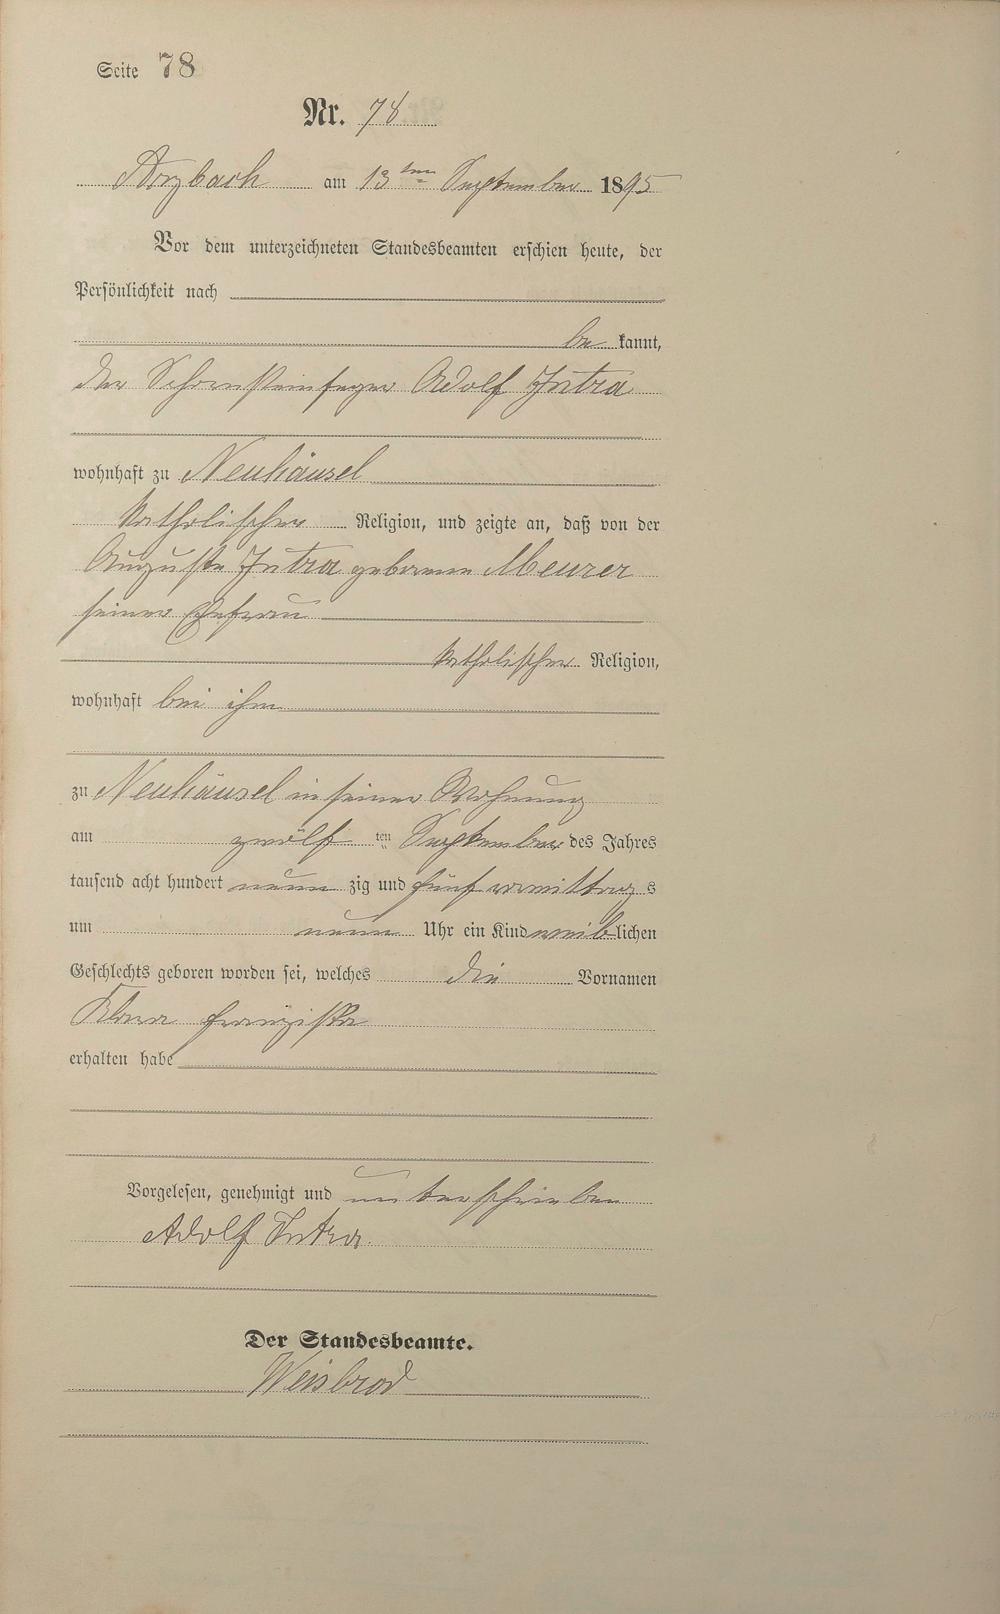 Seite 78
Nr. 78
Arzbach am 13ten September 1895
Vor dem unterzeichneten Standesbeamten erschien heute, der
Persönlichkeit nach
be kannt,
der Schornsteinfeger Adolf Intra
wohnhaft zu Neuhäusel
katholischer Religion, und zeigte an, daß von der
Auguste Intra geborene Meurer
seiner Ehefrau
katholischer Religion,
wohnhaft bei ihm
zu Neuhäusel in seiner Wohnung
am zwölf ten September des Jahres
tausend acht hundert neun zig und fünf vormittag s
um neun Uhr ein Kind weib lichen
Geschlechts geboren worden sei, welches die Vornamen
Klara Franziska
erhalten habe
Vorgelesen, genehmigt und unterschrieben
Adolf Intra.
Der Standesbeamte.
Weisbrod